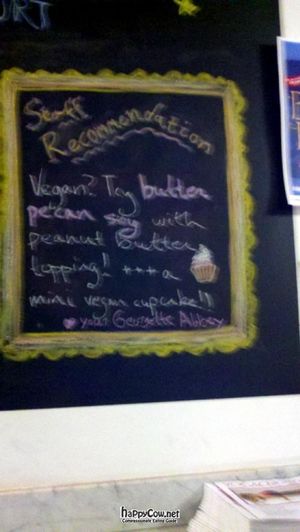 URT
Staff
Recommendation
Vegan? Try butter
pecan soy with
peanut butter
topping!! +++ a
mini vegan cupcake!!
♥ your Georgetti Abbey
happyCow.net
Compassionate Eating Guide